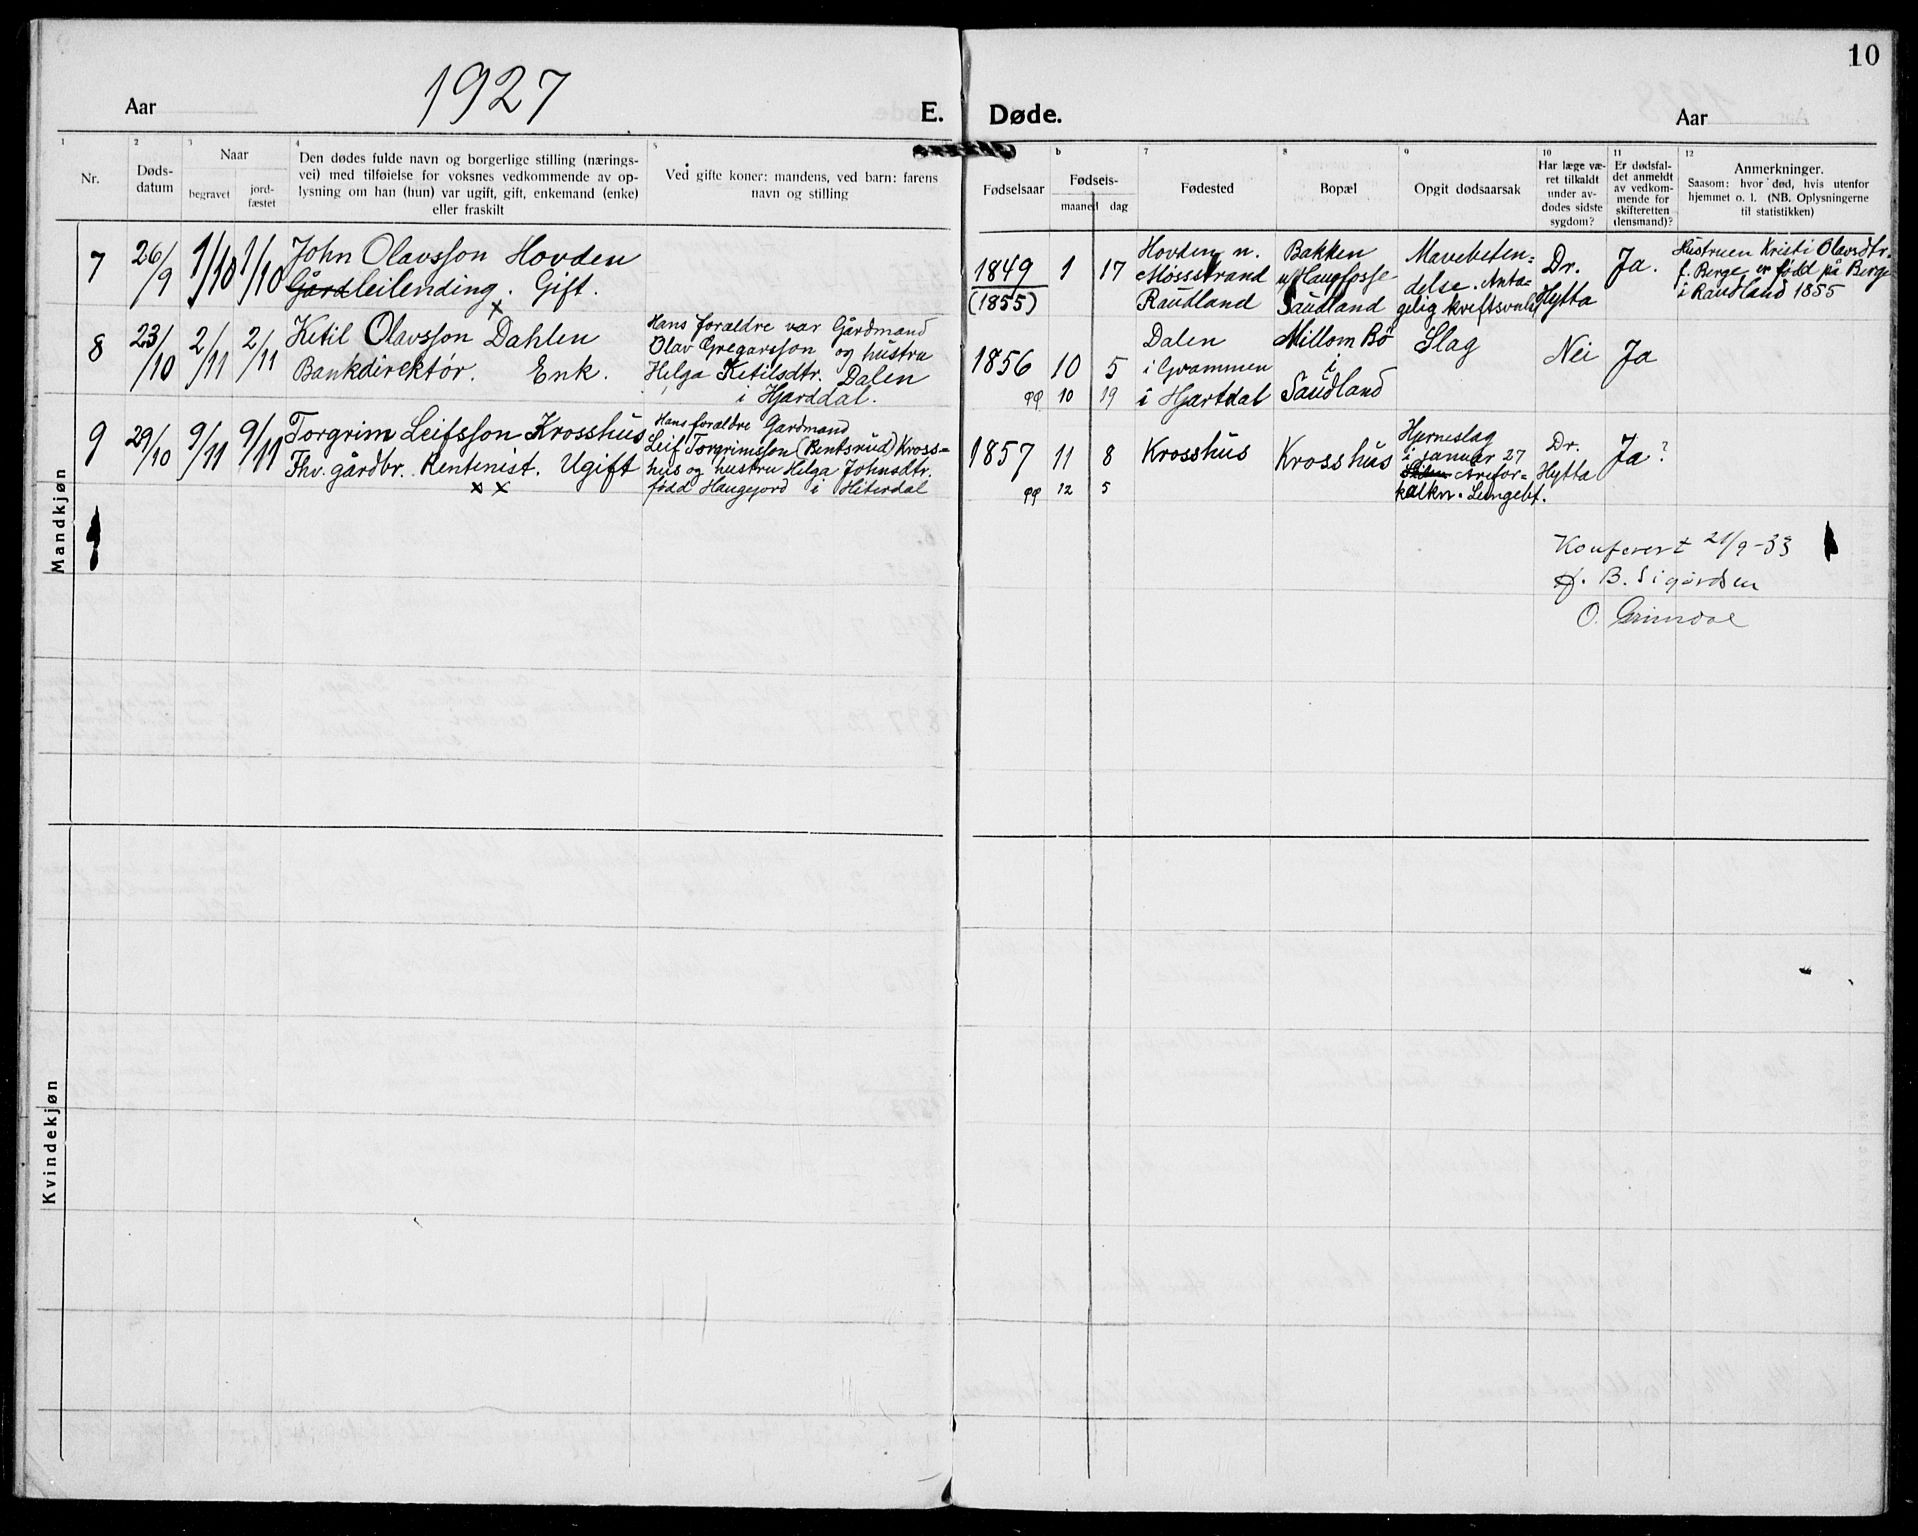 10
Aar 1927 E. Døde. Aar
1 2 3 4 5 6 7 8 9 10 11 12
Nr.
Døds-
datum
Naar
begravet
jord-
fæstet
Den dødes fulde navn og borgerlige stilling (nærings-
vei) med tilføielse for voksnes vedkommende av op-
lysning om han (hun) var ugift, gift, enkemand (enke)
eller fraskilt
Ved gifte koner: mandens, ved barn: farens
navn og stilling
Fødselsaar
Fødsels-
maaned dag
Fødested
Bopæl
Opgit dødsaarsak
Har læge væ-
ret tilkaldt
under av-
dødes sidste
sygdom?
Er dødsfal-
det anmeldt
av vedkom-
mende for
skifteretten
(lensmand)?
Anmerkninger.
Saasom: hvor død, hvis utenfor
hjemmet o. l. (NB. Oplysningerne
til statistikken)
Mandkjøn
7
26/9
1/10
1/10
John Olavsson Hovden
Gårdleilending. Gift.
1849
(1855)
1
17
Hovden n.
Møsstrand
Raudland
Bakken
u/Haugfosse
Saudland
Mavebeten=
delse. Anta=
gelig kreftsvulst
Dr.
Hytta
Ja.
Hustruen Kristi Olavsdtr.
f. Berge er född på Berge
i Raudland 1855
8
23/10
2/11
2/11
Ketil Olavsson Dahlen
Bankdirektør. Enk.
Hans foræeldre var Gårdmand
Olav Gregarsson og hustru
Helga Ketilsdtr. Dalen
i Hjarddal.
1856
10
5
φφ 10 19
Dalen
i Gvammen
i Hjartdal
Millom Bø
i
Saudland
Slag
Nei
Ja
9
29/10
9/11
9/11
Torgrim Leifsson Krosshus
Fhv. gårdbr. Rentenist. Ugift
× ×
Hans foræeldre Gardmand
Leif Torgrimsson (Bentsrud) Kross=
hus og hustru Helga Johnsdtr.
född Haugejord i Hiterdal
1857
11
8
φφ 12 5
Krosshus
Krosshus
Hjerneslag
i januar 27
Årefor=
kalkn. Lungebt.
Dr.
Hytta
Ja?
Konferert 21/9-33
B. Sigurdsen
O. Grimdal
Kvindekjøn